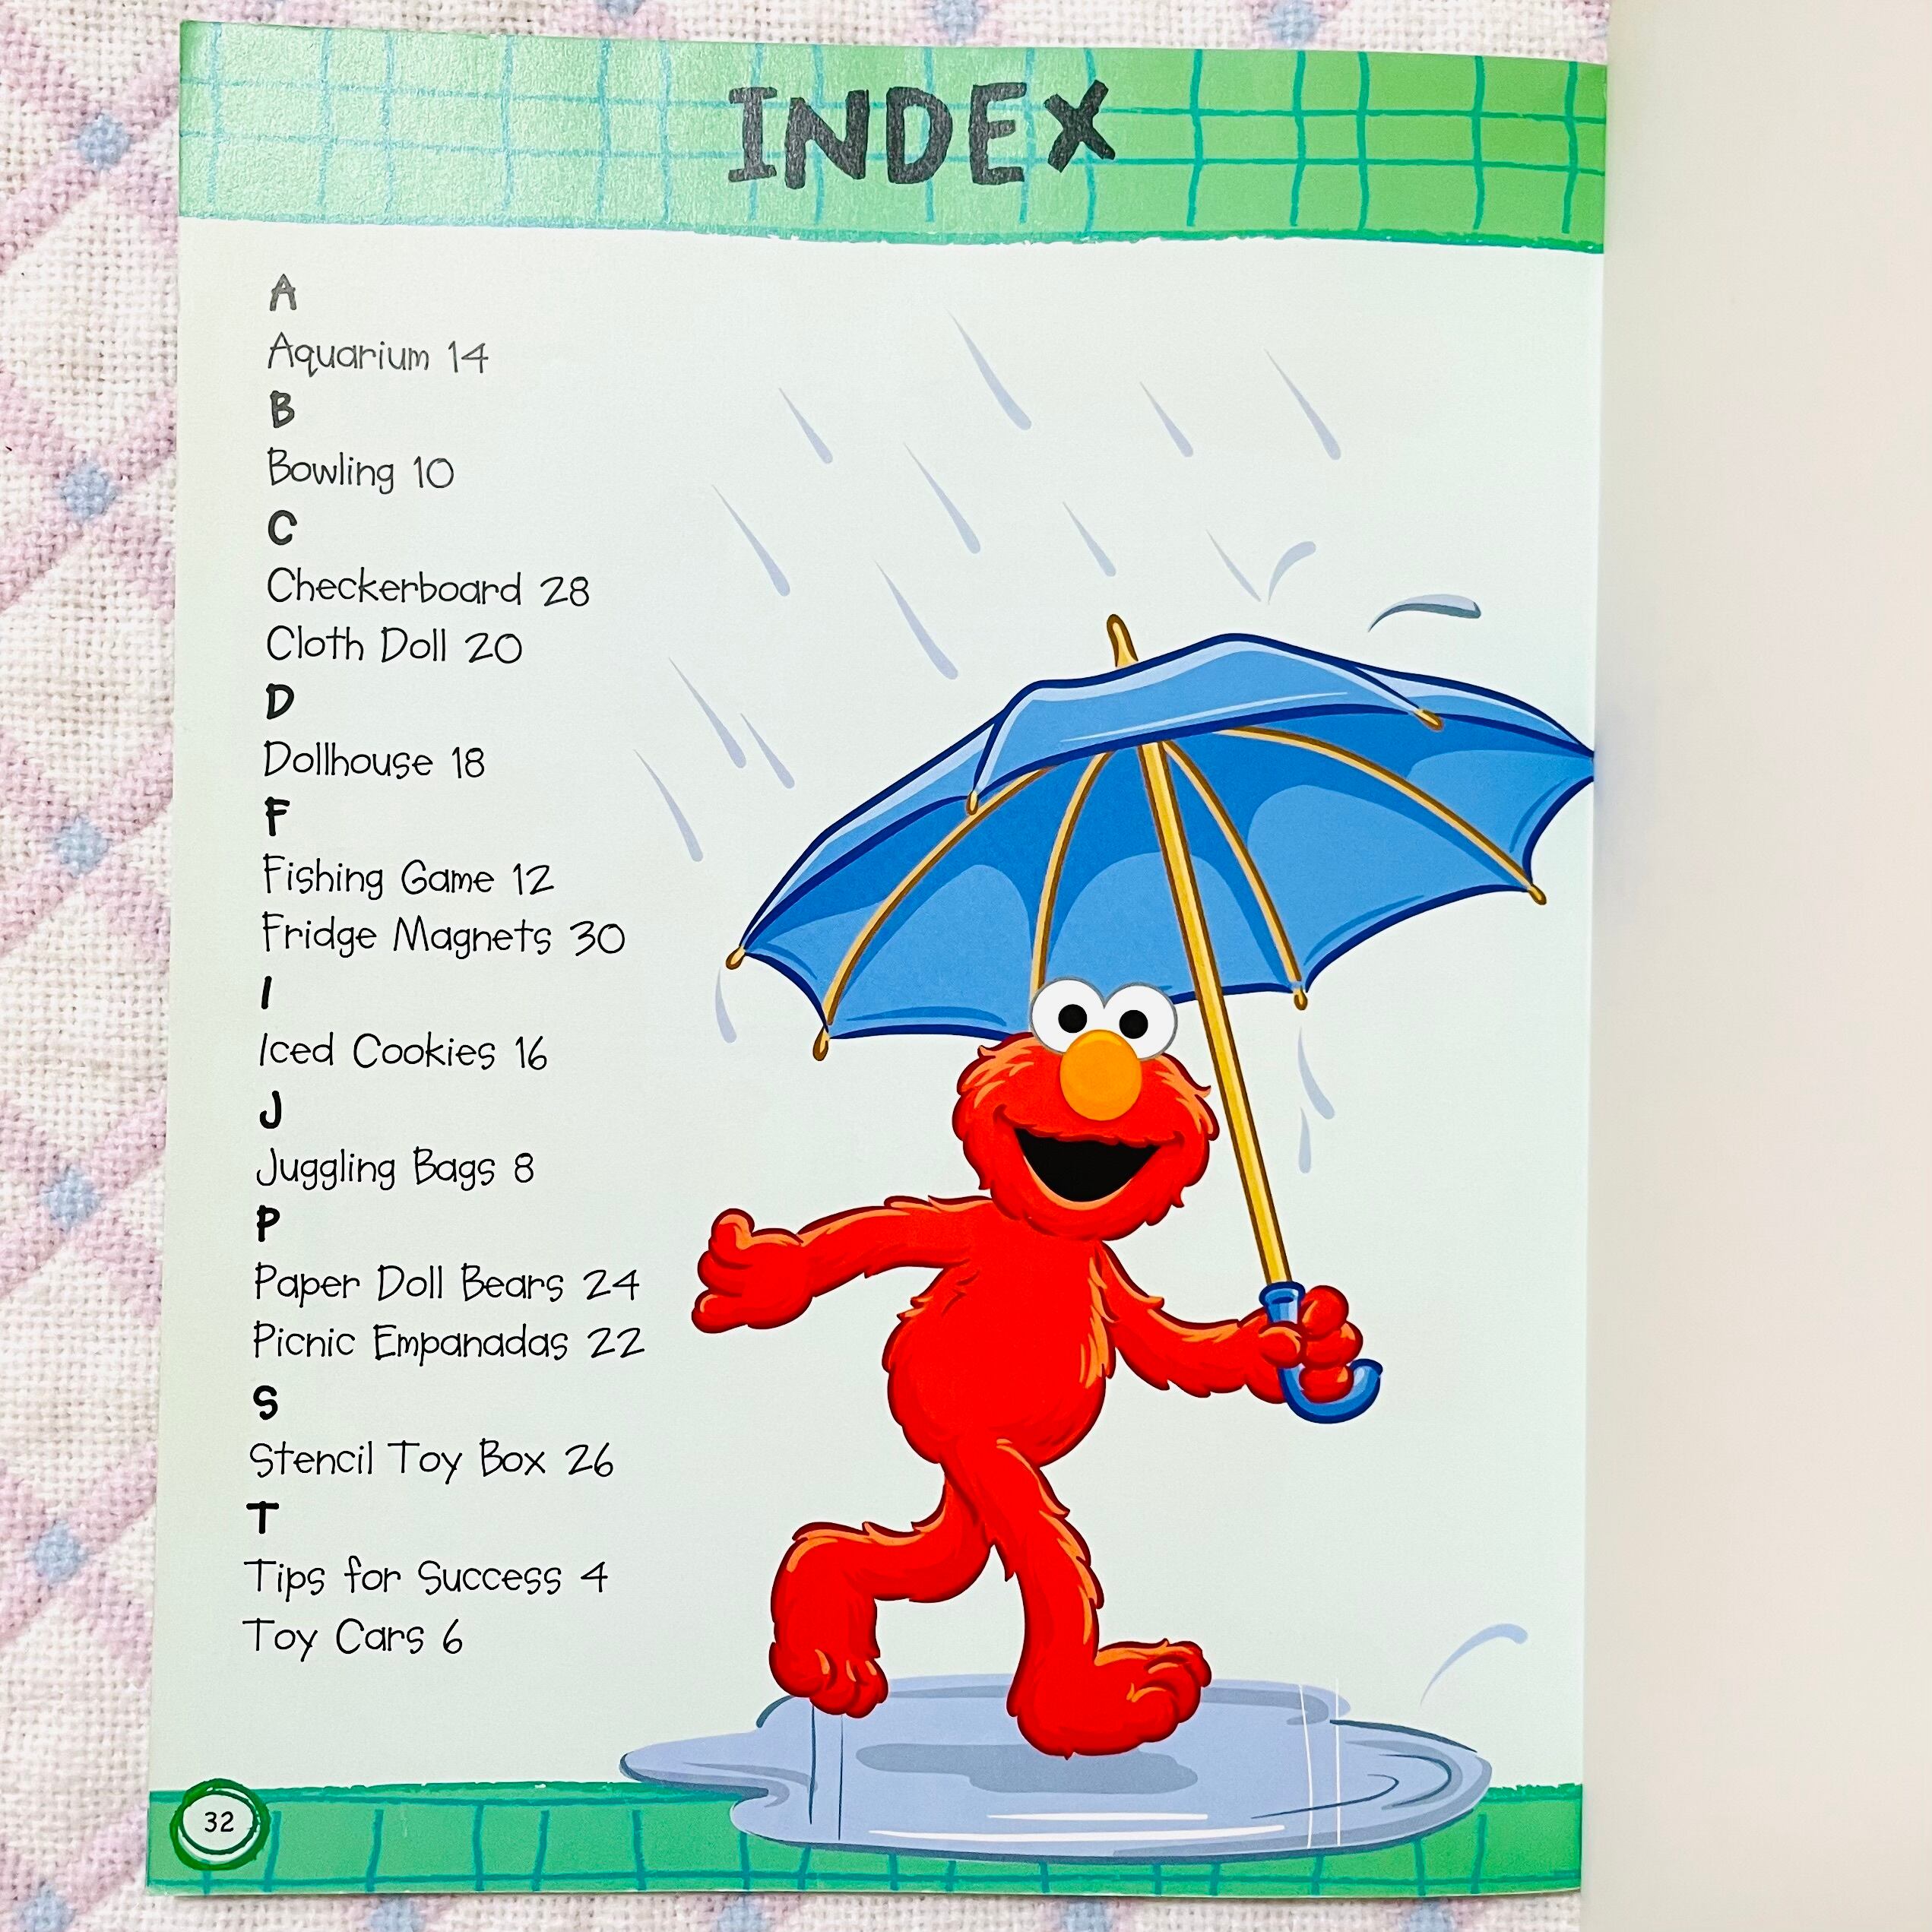 INDEX
A
Aquarium 14
B
Bowling 10
C
Checkerboard 28
Cloth Doll 20
D
Dollhouse 18
F
Fishing Game 12
Fridge Magnets 30
I
Iced Cookies 16
J
Juggling Bags 8
P
Paper Doll Bears 24
Picnic Empanadas 22
S
Stencil Toy Box 26
T
Tips for Success 4
Toy Cars 6
32